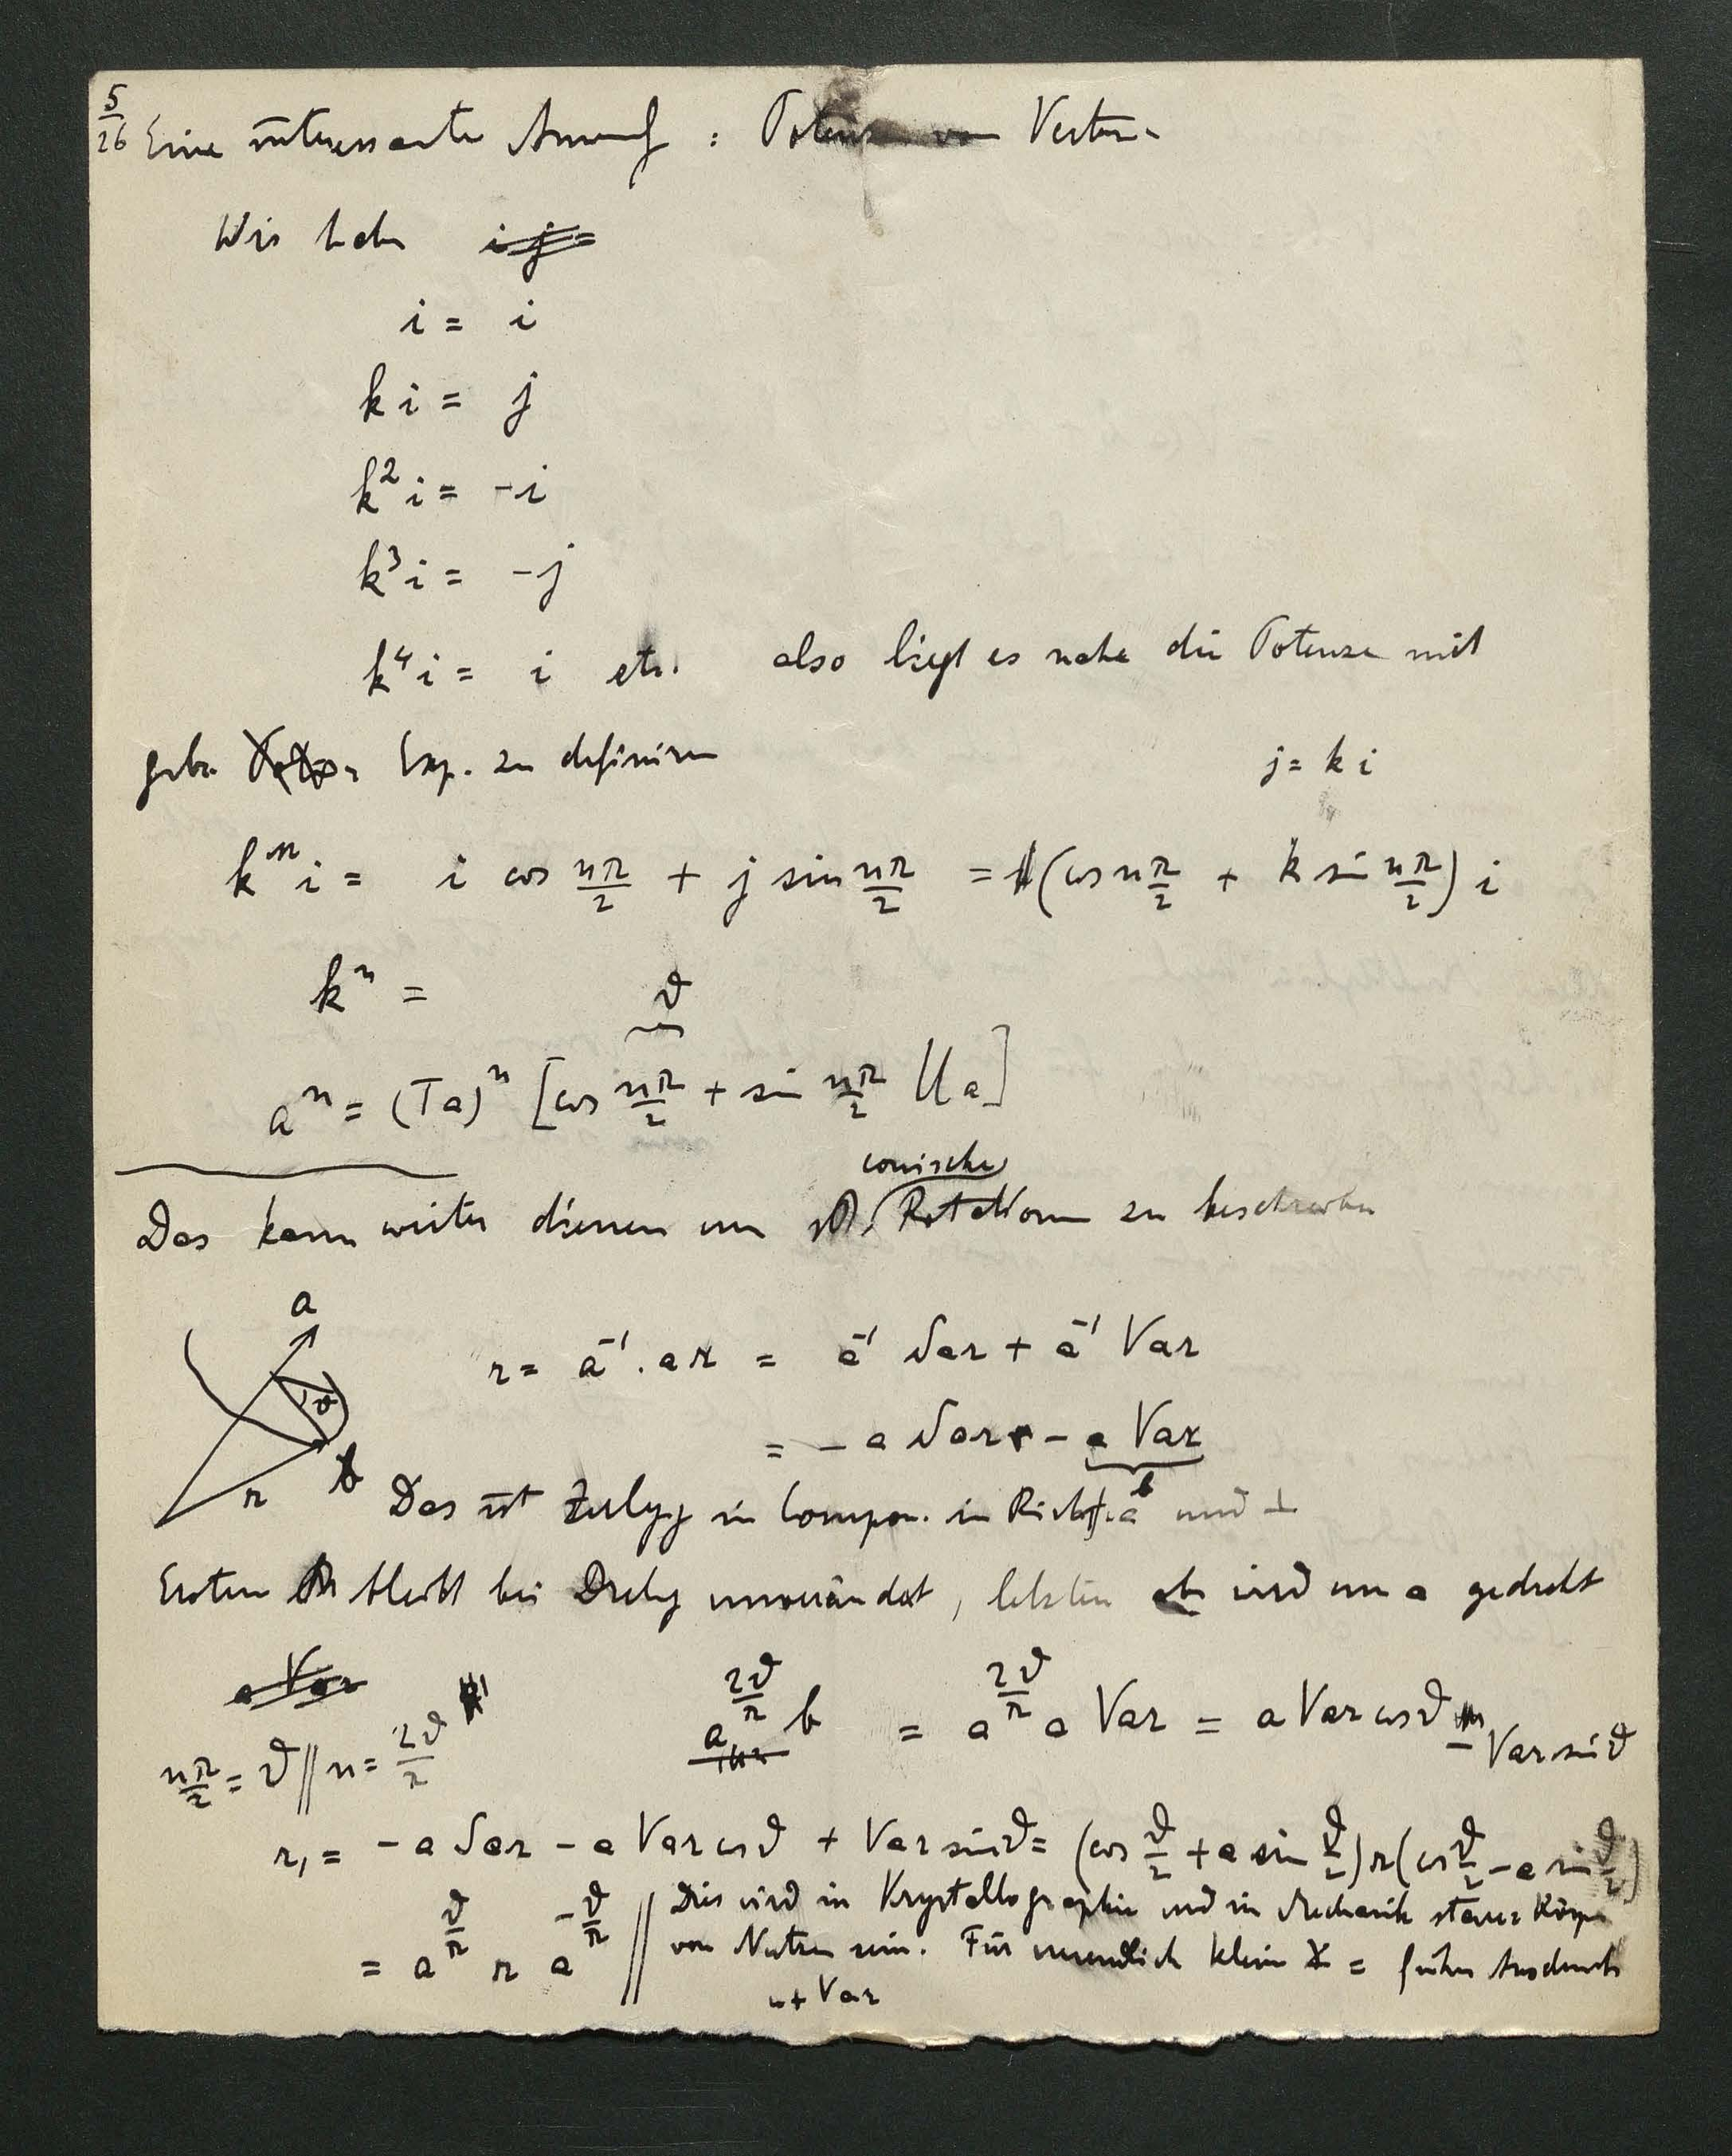 5/26 Eine interessante Anwendg : Potenzen von Vektoren
Wir haben ~~i j =~~
i = i
k i = j
k² i = -i
k³ i = -j
k⁴ i = i etc. also liegt es nahe die Potenzen mit
gebr. Exp. zu definiren
j = k i
kⁿ i = i cos nπ/2 + j sin nπ/2 = (cos nπ/2 + k sin nπ/2) i
kⁿ =
ϑ
aⁿ = (Ta)ⁿ [cos nπ/2 + sin nπ/2 Ua]
conische
Das kann weiter dienen um Rotationen zu beschreiben
a
ϑ
r b
r = a⁻¹ . a r = a⁻¹ Sar + a⁻¹ Var
= - a Sar - a Var
b
Das ist Zerlgg in Compon. in Richtg. a und ⊥
Erstere bleibt bei Drehg unverändert, letztere wird um a gedreht
~~a Var~~
nπ/2 = ϑ // n = 2ϑ/π
a^(2ϑ/π) b = a^(2ϑ/π) a Var = a Var cos ϑ - Var sin ϑ
r₁ = - a Sar - a Var cos ϑ + Var sin ϑ = (cos ϑ/2 + a sin ϑ/2) r (cos ϑ/2 - a sin ϑ/2)
= a^(ϑ/π) r a^(-ϑ/π) // Dies wird in Krystallographie und in Mechanik starrer Körper
von Nutzen sein. Für unendlich klein = früher Ausdruck
r + Var